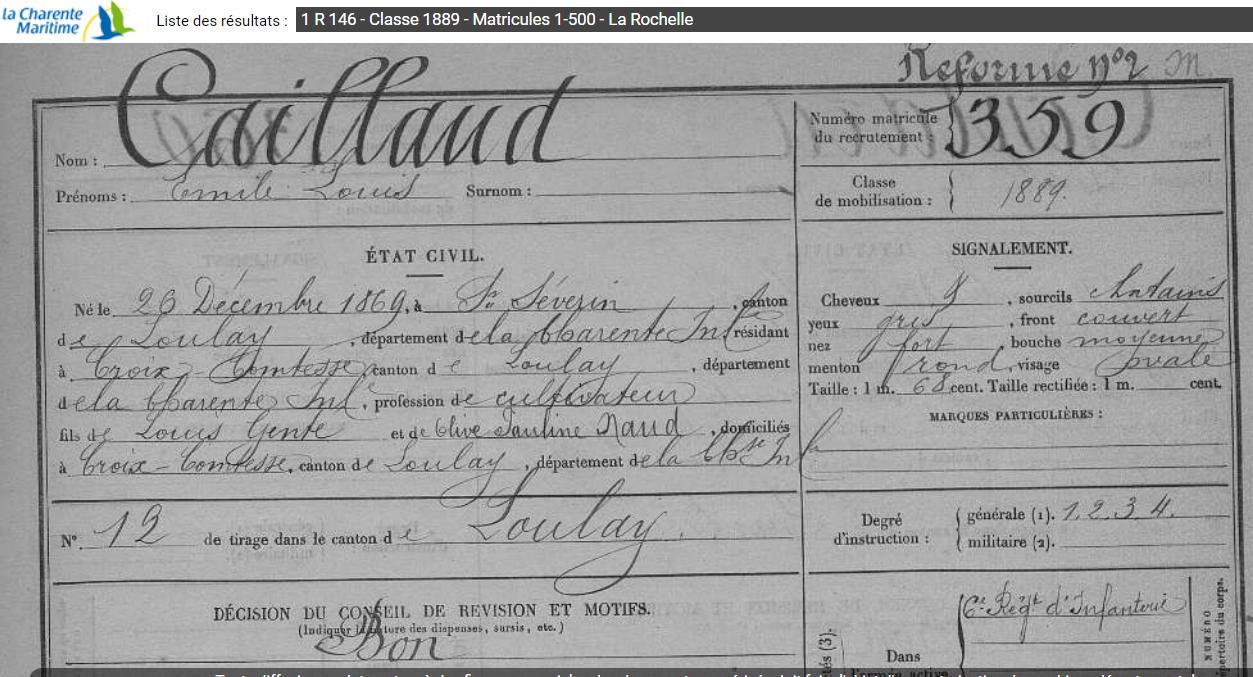 la Charente
Maritime
Liste des résultats : 1 R 146 - Classe 1889 - Matricules 1-500 - La Rochelle
Réforme n°2
Nom : Caillaud
Prénoms : Emile Louis Surnom :
Numéro matricule
du recrutement : 359
Classe
de mobilisation : 1889.
ÉTAT CIVIL.
Né le 26 Décembre 1869, à St Séverin, canton
de Loulay, département de la Charente Infre résidant
à Croix-Comtesse canton de Loulay, département
de la Charente Infre, profession de cultivateur
fils de Louis et de Olive Pauline Naud, domiciliés
à Croix-Comtesse, canton de Loulay, département de la Chte Infre
N° 12 de tirage dans le canton de Loulay.
DÉCISION DU CONSEIL DE REVISION ET MOTIFS.
(Indiquer la nature des dispenses, sursis, etc.)
Bon
SIGNALEMENT.
Cheveux , sourcils chatains
yeux gris, front couvert
nez fort, bouche moyenne
menton rond, visage ovale
Taille : 1 m. 68 cent. Taille rectifiée : 1 m. cent.
MARQUES PARTICULIÈRES :
Degré
d'instruction :
générale (1). 1. 2. 3. 4.
militaire (2).
6e Régt d'Infanterie
Dans
NUMÉRO
répertoire du corps.